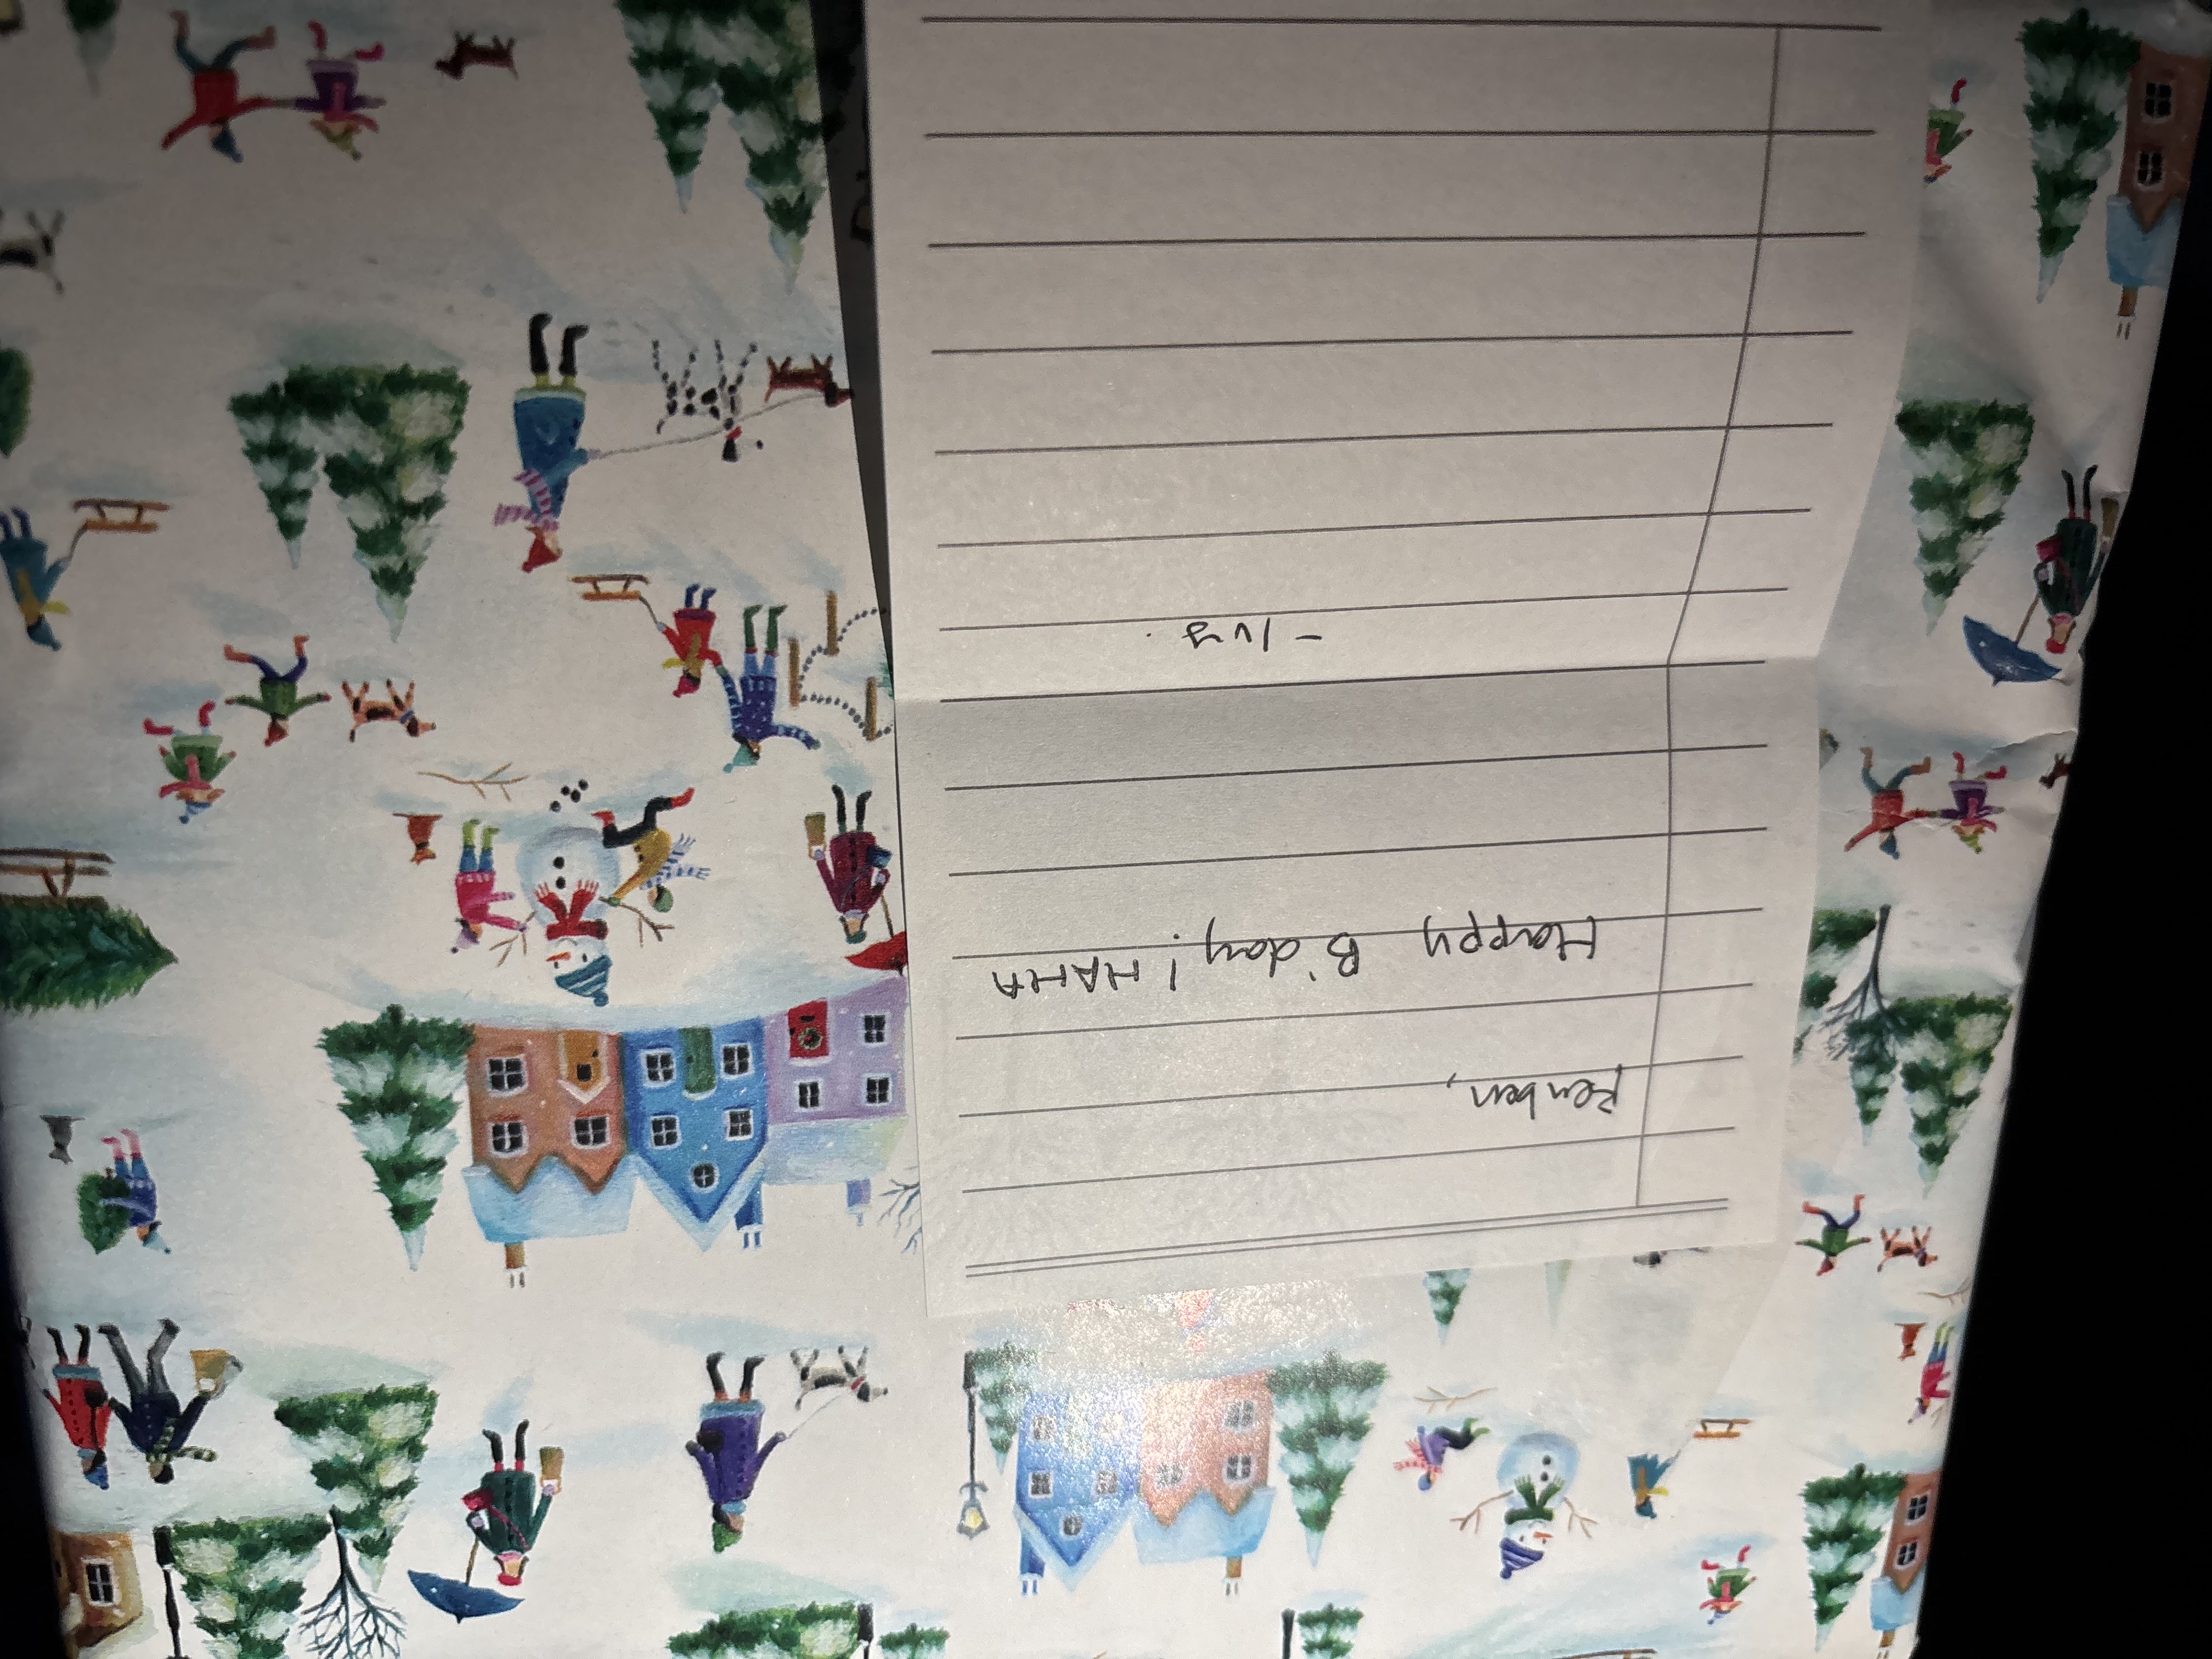 Reuben,
Happy B'day! HAHA
- Ivy.